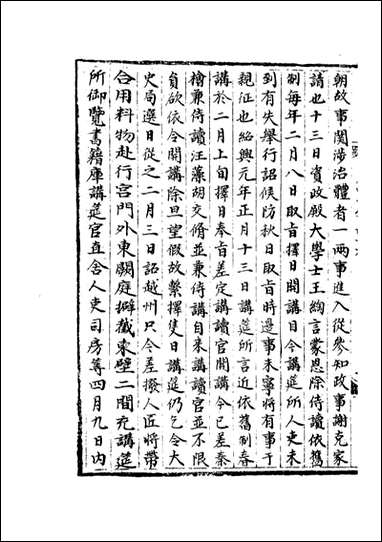 朝故事関涉治體者一兩事進入從參知政事謝克家
請也十三日資政殿大學士王綯言蒙恩除侍讀依舊
制每年二月八日取旨擇日開講日今講筵所人吏未
到有失舉行詔候防秋日取旨時邊事未寧將有事于
親征也紹興元年正月十三日講筵所言近依舊制春
講於二月上旬擇日奉旨差定講讀官開講今已差秦
檜兼侍讀汪藻胡交脩並兼侍講自来講讀官並不限
負欲依令開講除旦望假故繫擇隻日講筵仍乞令大
史局選日從之二月三日詔越州只今差撥人匠將帶
合用料物赴行宫門外東闕庭擗截東壁二間充講筵
所御覽書籍庫講筵官直舍人吏司房等四月九日内